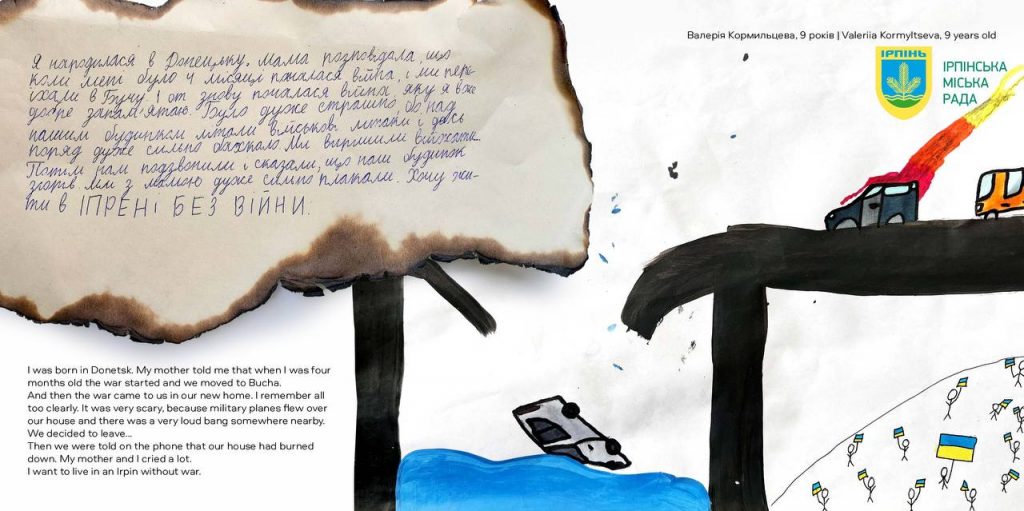 Валерія Кормильцева, 9 років | Valeriia Kormyltseva, 9 years old
ІРПІНЬ
ІРПІНСЬКА
МІСЬКА
РАДА
Я народилася в Донецьку. Мама розповідала, що
коли мені було 4 місяці почалася війна, і ми пере-
їхали в Бучу. І от знову почалася війна, яку я вже
добре запам'ятаю. Було дуже страшно, бо над
нашим будинком літали військові літаки і десь
поряд дуже сильно бахкало. Ми вирішили виїжжати.
Потім нам подзвонили і сказали, що наш будинок
згорів. Ми з мамою дуже сильно плакали. Хочу жи-
ти в ІПРЕНІ БЕЗ ВІЙНИ.
I was born in Donetsk. My mother told me that when I was four
months old the war started and we moved to Bucha.
And then the war came to us in our new home. I remember all
too clearly. It was very scary, because military planes flew over
our house and there was a very loud bang somewhere nearby.
We decided to leave...
Then we were told on the phone that our house had burned
down. My mother and I cried a lot.
I want to live in an Irpin without war.